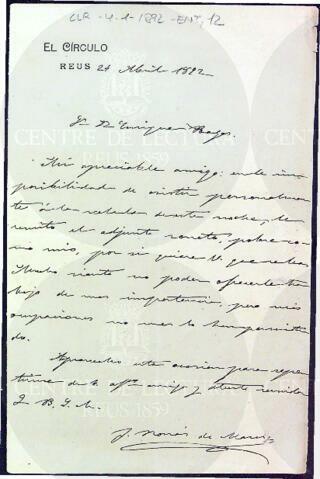 CLR - 4.1 - 1892 - ENT, 12
EL CÍRCULO
REUS 24 Abril 1892
Sr. D. Enrique
CENTRE DE LECTURA
REUS 1859
Mi apreciable amigo: en la im
posibilidad de asistir personalmen
te á la velada de esta noche, le
remito el adjunto soneto, pobre co
mo mio, por si quiere V. que se lea.
Mucho siento no poder ofrecerle tra
bajo de mas importancia, pero mis
ocupaciones no me lo han permiti
do.
Aprovecho esta ocasion para repe
tirme de V. affmo. amigo y atento servidor
Q. B. S. M.
J. de